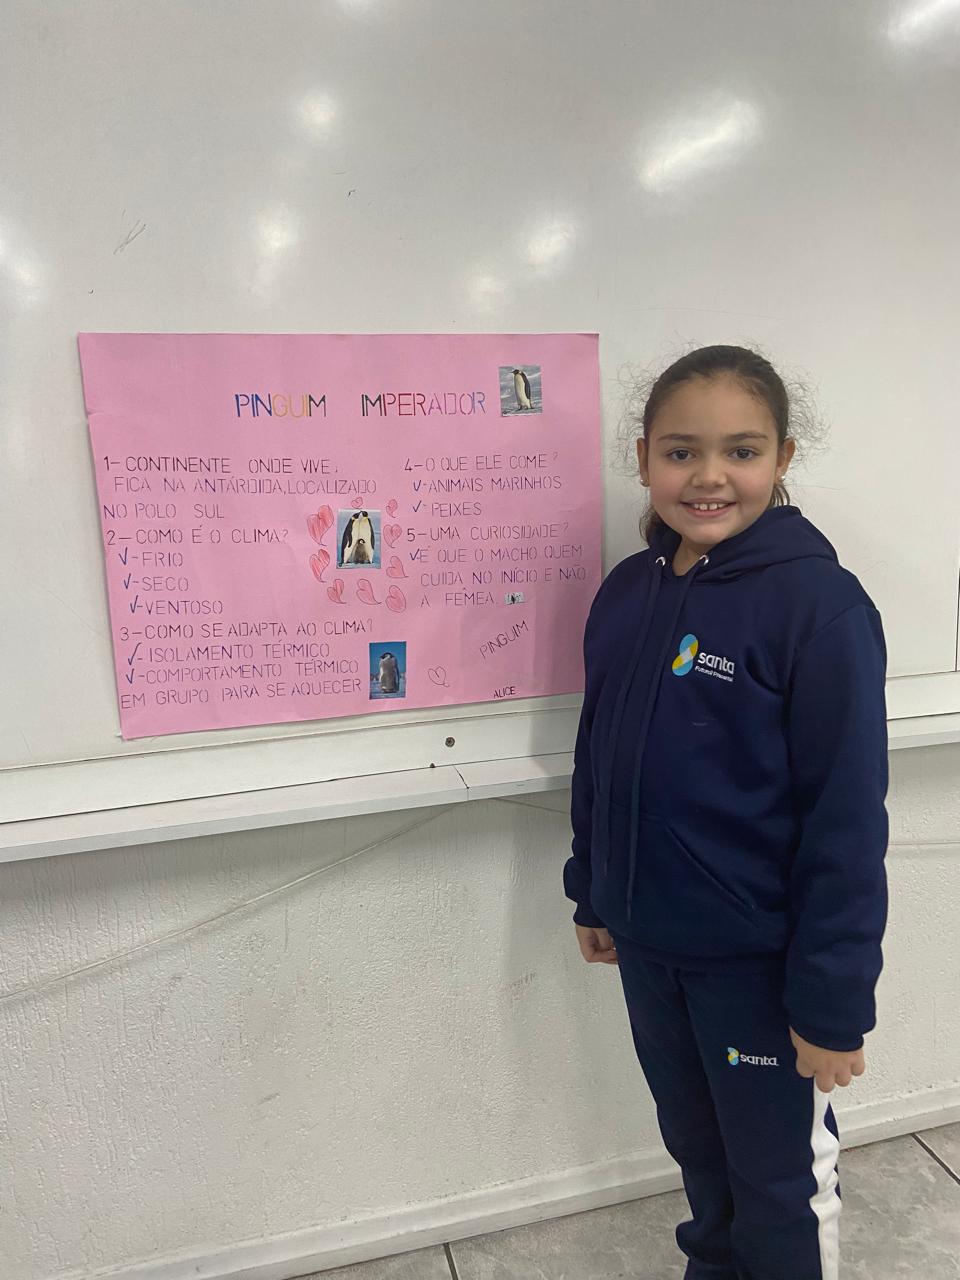 PINGUIM IMPERADOR
1- CONTINENTE ONDE VIVE:
FICA NA ANTÁRDIDA, LOCALIZADO
NO POLO SUL
2- COMO É O CLIMA?
✓- FRIO
✓- SECO
✓- VENTOSO
3- COMO SE ADAPTA AO CLIMA?
✓- ISOLAMENTO TÉRMICO
✓- COMPORTAMENTO TÉRMICO
EM GRUPO PARA SE AQUECER
4- O QUE ELE COME?
✓- ANIMAIS MARINHOS
✓- PEIXES
5- UMA CURIOSIDADE?
✓É QUE O MACHO QUEM
CUIDA NO INÍCIO E NÃO
A FÊMEA.
PINGUIM
ALICE
santa
santa